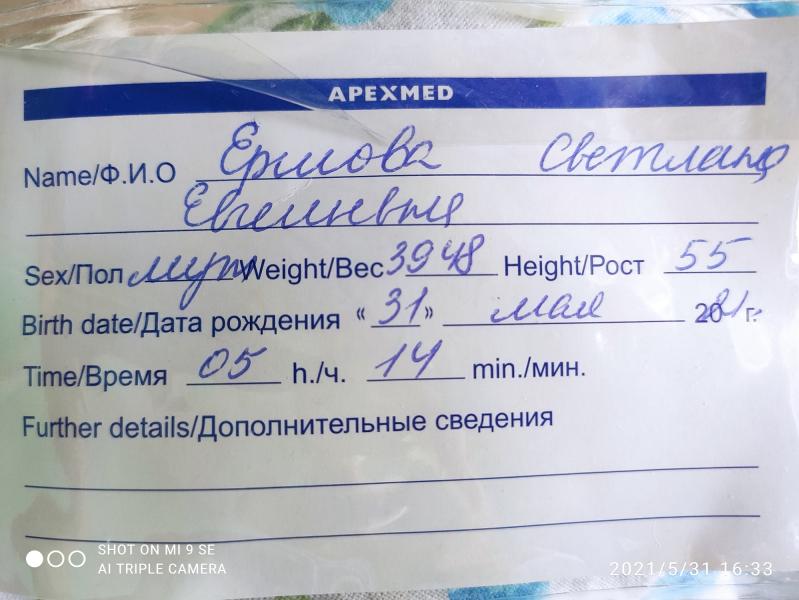 APEXMED
Name/Ф.И.О Ермова Светлана
Евгеневна
Sex/Пол муж Weight/Вес 3948 Height/Рост 55
Birth date/Дата рождения «31» мая 2021 г.
Time/Время 05 h./ч. 14 min./мин.
Further details/Дополнительные сведения
SHOT ON MI 9 SE
AI TRIPLE CAMERA
2021/5/31 16:33